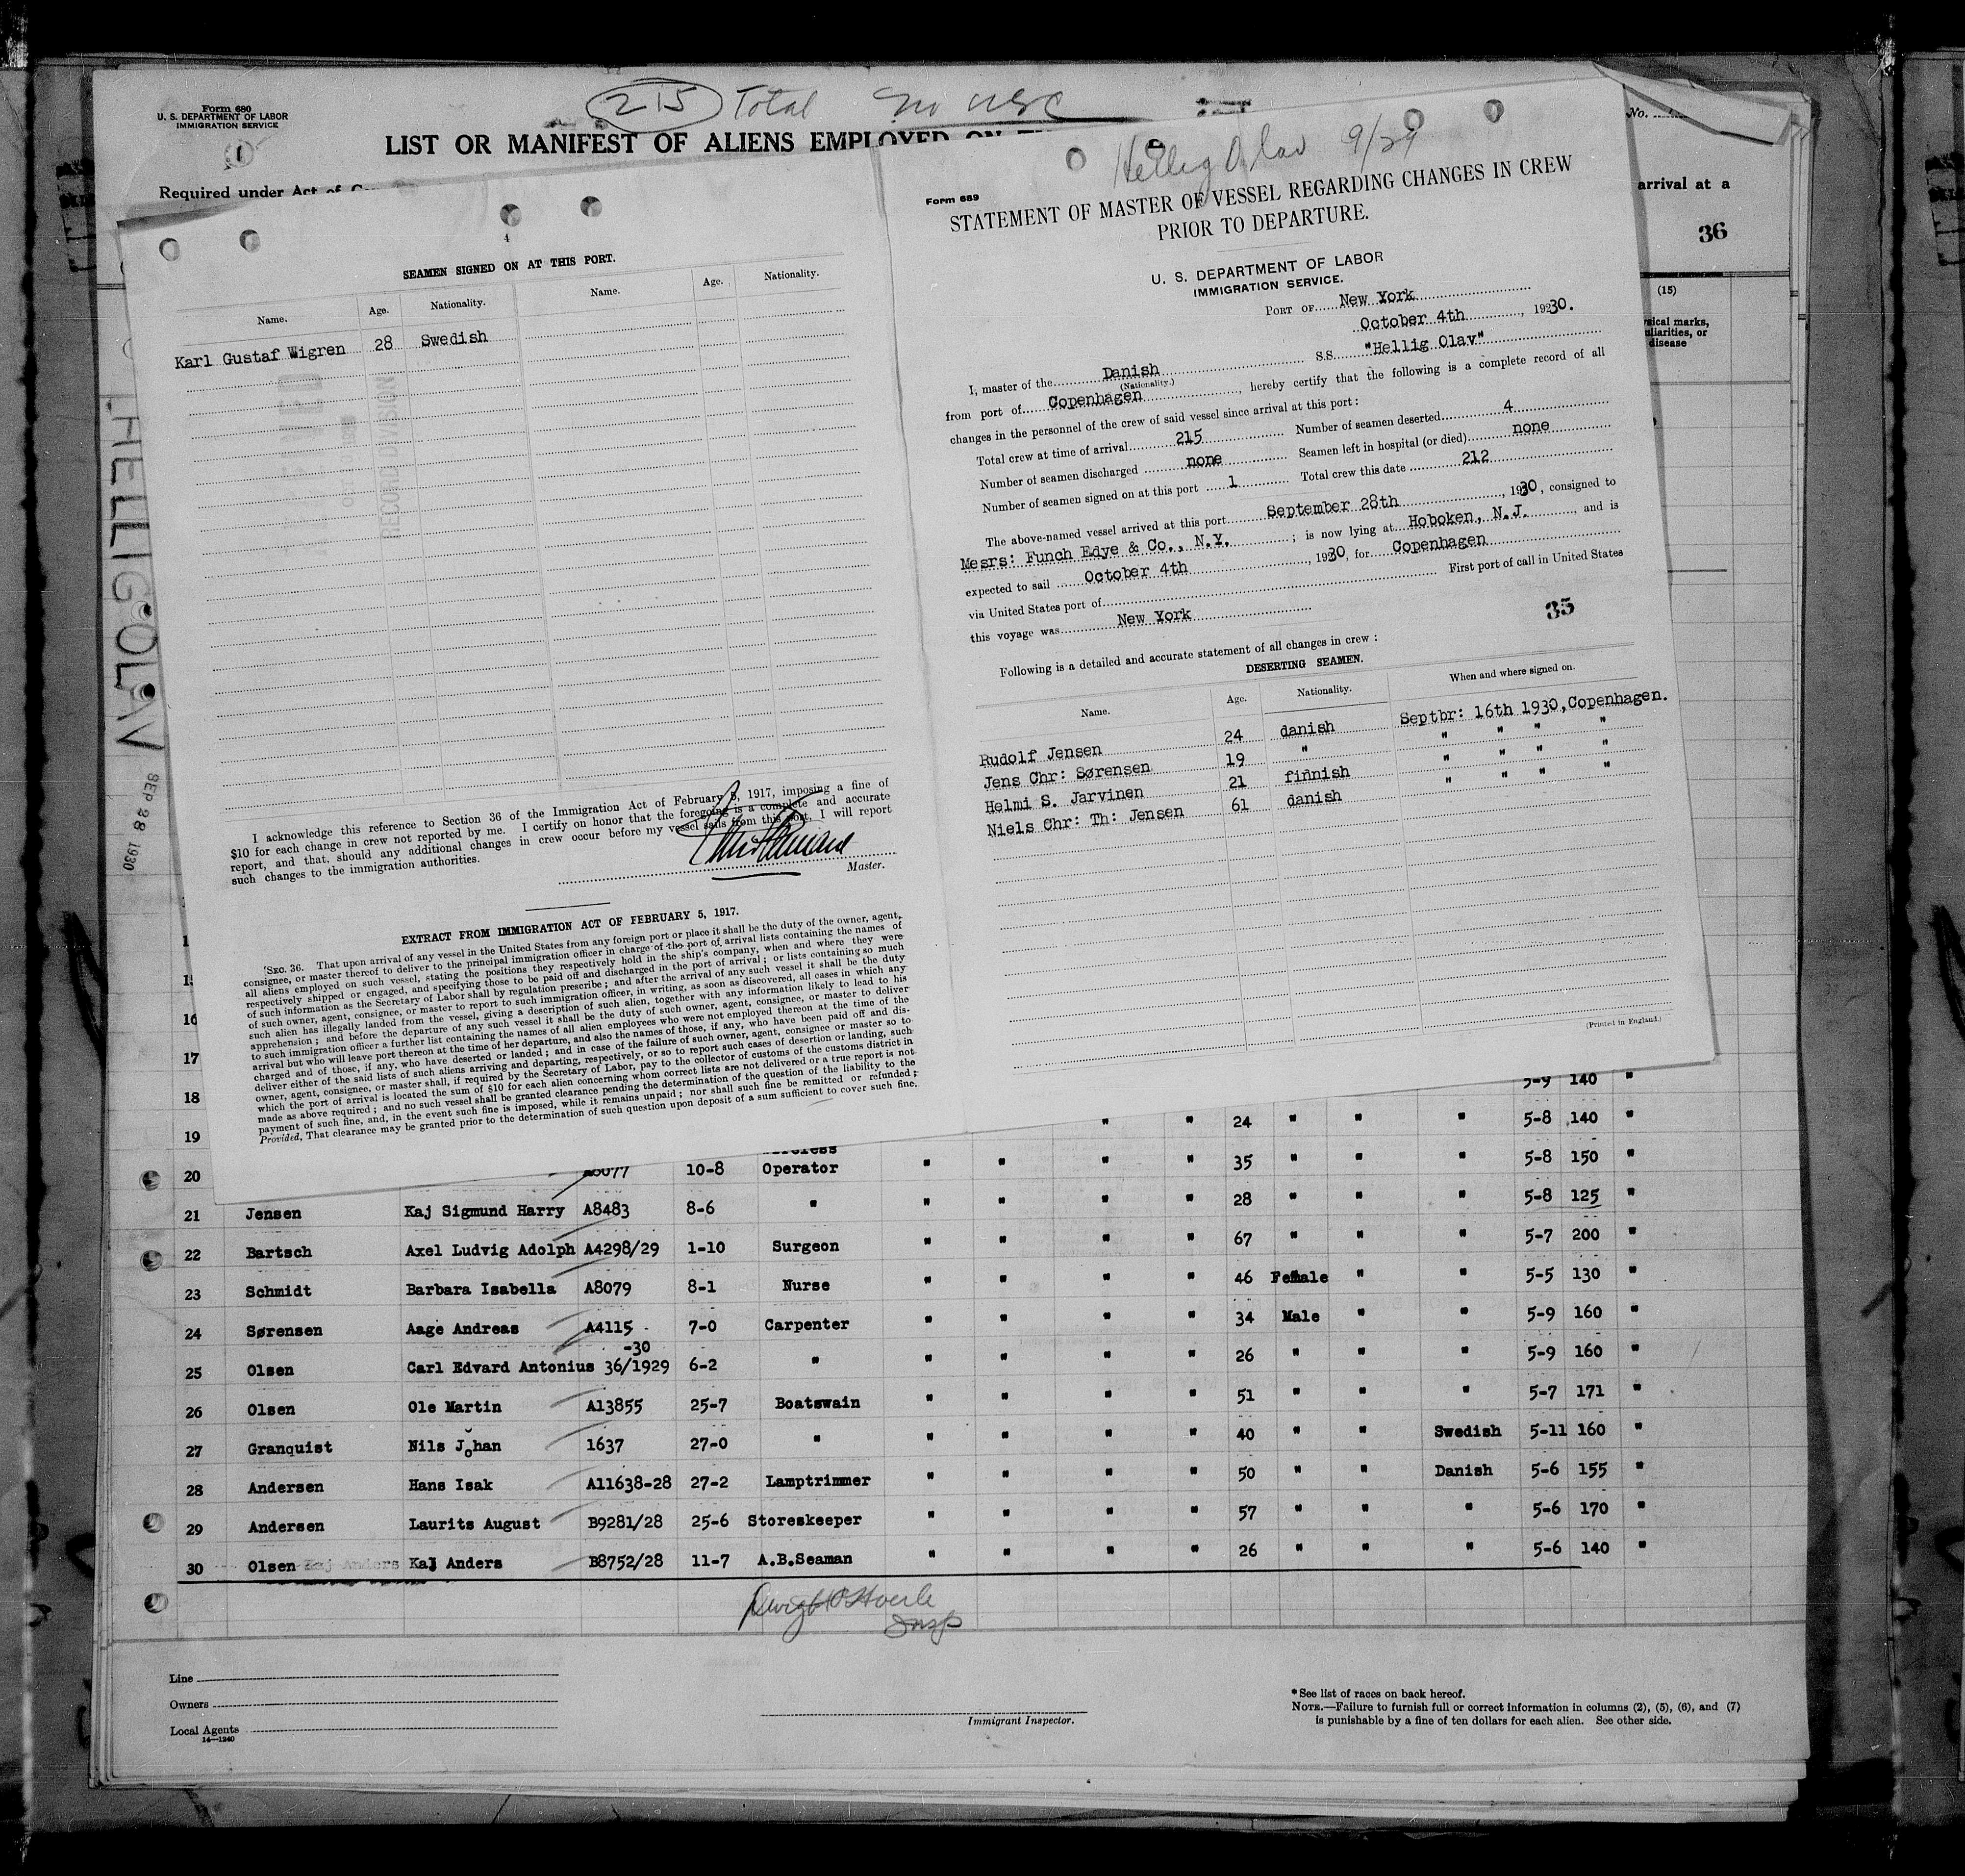 Form 680
U. S. DEPARTMENT OF LABOR
IMMIGRATION SERVICE
1
215 Total no USC
LIST OR MANIFEST OF ALIENS EMPLOYED ON
Required under Act of
No.
arrival at a
36
(15)
disease
HELLIG OLAV
SEP 28 1930
4
SEAMEN SIGNED ON AT THIS PORT.
Name. Age. Nationality. Name. Age. Nationality.
Karl Gustaf Wigren 28 Swedish
RECORD DIVISION
I acknowledge this reference to Section 36 of the Immigration Act of February 5, 1917, imposing a fine of
$10 for each change in crew not reported by me. I certify on honor that the foregoing is a complete and accurate
report, and that, should any additional changes in crew occur before my vessel sails from this port, I will report
such changes to the immigration authorities.
Master.
EXTRACT FROM IMMIGRATION ACT OF FEBRUARY 5, 1917.
SEC. 36. That upon arrival of any vessel in the United States from any foreign port or place it shall be the duty of the owner, agent,
consignee, or master thereof to deliver to the principal immigration officer in charge of the port of arrival lists containing the names of
all aliens employed on such vessel, stating the positions they respectively hold in the ship's company, when and where they were
respectively shipped or engaged, and specifying those to be paid off and discharged in the port of arrival; or lists containing so much
of such information as the Secretary of Labor shall by regulation prescribe; and after the arrival of any such vessel it shall be the duty
of such owner, agent, consignee, or master to report to such immigration officer, in writing, as soon as discovered, all cases in which any
such alien has illegally landed from the vessel, giving a description of such alien, together with any information likely to lead to his
apprehension; and before the departure of any such vessel it shall be the duty of such owner, agent, consignee, or master to deliver
to such immigration officer a further list containing the names of all alien employees who were not employed thereon at the time of the
arrival but who will leave port thereon at the time of her departure, and also the names of those, if any, who have been paid off and dis-
charged and of those, if any, who have deserted or landed; and in case of the failure of such owner, agent, consignee or master so to
deliver either of the said lists of such aliens arriving and departing, respectively, or so to report such cases of desertion or landing, such
owner, agent, consignee, or master shall, if required by the Secretary of Labor, pay to the collector of customs of the customs district in
which the port of arrival is located the sum of $10 for each alien concerning whom correct lists are not delivered or a true report is not
made as above required; and no such vessel shall be granted clearance pending the determination of the question of the liability to the
payment of such fine, and, in the event such fine is imposed, while it remains unpaid; nor shall such fine be remitted or refunded;
Provided, That clearance may be granted prior to the determination of such question upon deposit of a sum sufficient to cover such fine.
Hellig Olav 9/29
Form 689
STATEMENT OF MASTER OF VESSEL REGARDING CHANGES IN CREW
PRIOR TO DEPARTURE.
U. S. DEPARTMENT OF LABOR
IMMIGRATION SERVICE.
PORT OF New York
October 4th, 19230.
I, master of the Danish S.S. "Hellig Olav"
(Nationality.)
from port of Copenhagen, hereby certify that the following is a complete record of all
changes in the personnel of the crew of said vessel since arrival at this port:
Total crew at time of arrival 215 Number of seamen deserted 4
Number of seamen discharged none Seamen left in hospital (or died) none
Number of seamen signed on at this port 1 Total crew this date 212
The above-named vessel arrived at this port September 28th, 1930, consigned to
Mesrs: Funch Edye & Co., N.Y. ; is now lying at Hoboken, N.J., and is
expected to sail October 4th, 1930, for Copenhagen
via United States port of First port of call in United States
this voyage was New York
35
Following is a detailed and accurate statement of all changes in crew:
DESERTING SEAMEN.
Name. Age. Nationality. When and where signed on.
Rudolf Jensen 24 danish Septbr: 16th 1930, Copenhagen.
Jens Chr: Sørensen 19 " " " " "
Helmi S. Jarvinen 21 finnish " " " "
Niels Chr: Th: Jensen 61 danish " " " "
(Printed in England.)
16
17
18 5-9 140 "
19 " " 24 " " " 5-8 140 "
20 A8077 10-8 Operator " " " " 35 " " " 5-8 150 "
21 Jensen Kaj Sigmund Harry A8483 8-6 " " " " " 28 " " " 5-8 125 "
22 Bartsch Axel Ludvig Adolph A4298/29 1-10 Surgeon " " " " 67 " " " 5-7 200 "
23 Schmidt Barbara Isabella A8079 8-1 Nurse " " " " 46 Female " " 5-5 130 "
24 Sørensen Aage Andreas A4115 7-0 Carpenter " " " " 34 Male " " 5-9 160 "
-30
25 Olsen Carl Edvard Antonius 36/1929 6-2 " " " " " 26 " " " 5-9 160 "
26 Olsen Ole Martin A13855 25-7 Boatswain " " " " 51 " " " 5-7 171 "
27 Granquist Nils Johan 1637 27-0 " " " " " 40 " " Swedish 5-11 160 "
28 Andersen Hans Isak A11638-28 27-2 Lamptrimmer " " " " 50 " " Danish 5-6 155 "
29 Andersen Laurits August B9281/28 25-6 Storeskeeper " " " " 57 " " " 5-6 170 "
30 Olsen Kaj Anders Kaj Anders B8752/28 11-7 A.B.Seaman " " " " 26 " " " 5-6 140 "
Insp
Line
Owners
Local Agents
14-1240
Immigrant Inspector.
*See list of races on back hereof.
NOTE.—Failure to furnish full or correct information in columns (2), (5), (6), and (7)
is punishable by a fine of ten dollars for each alien. See other side.